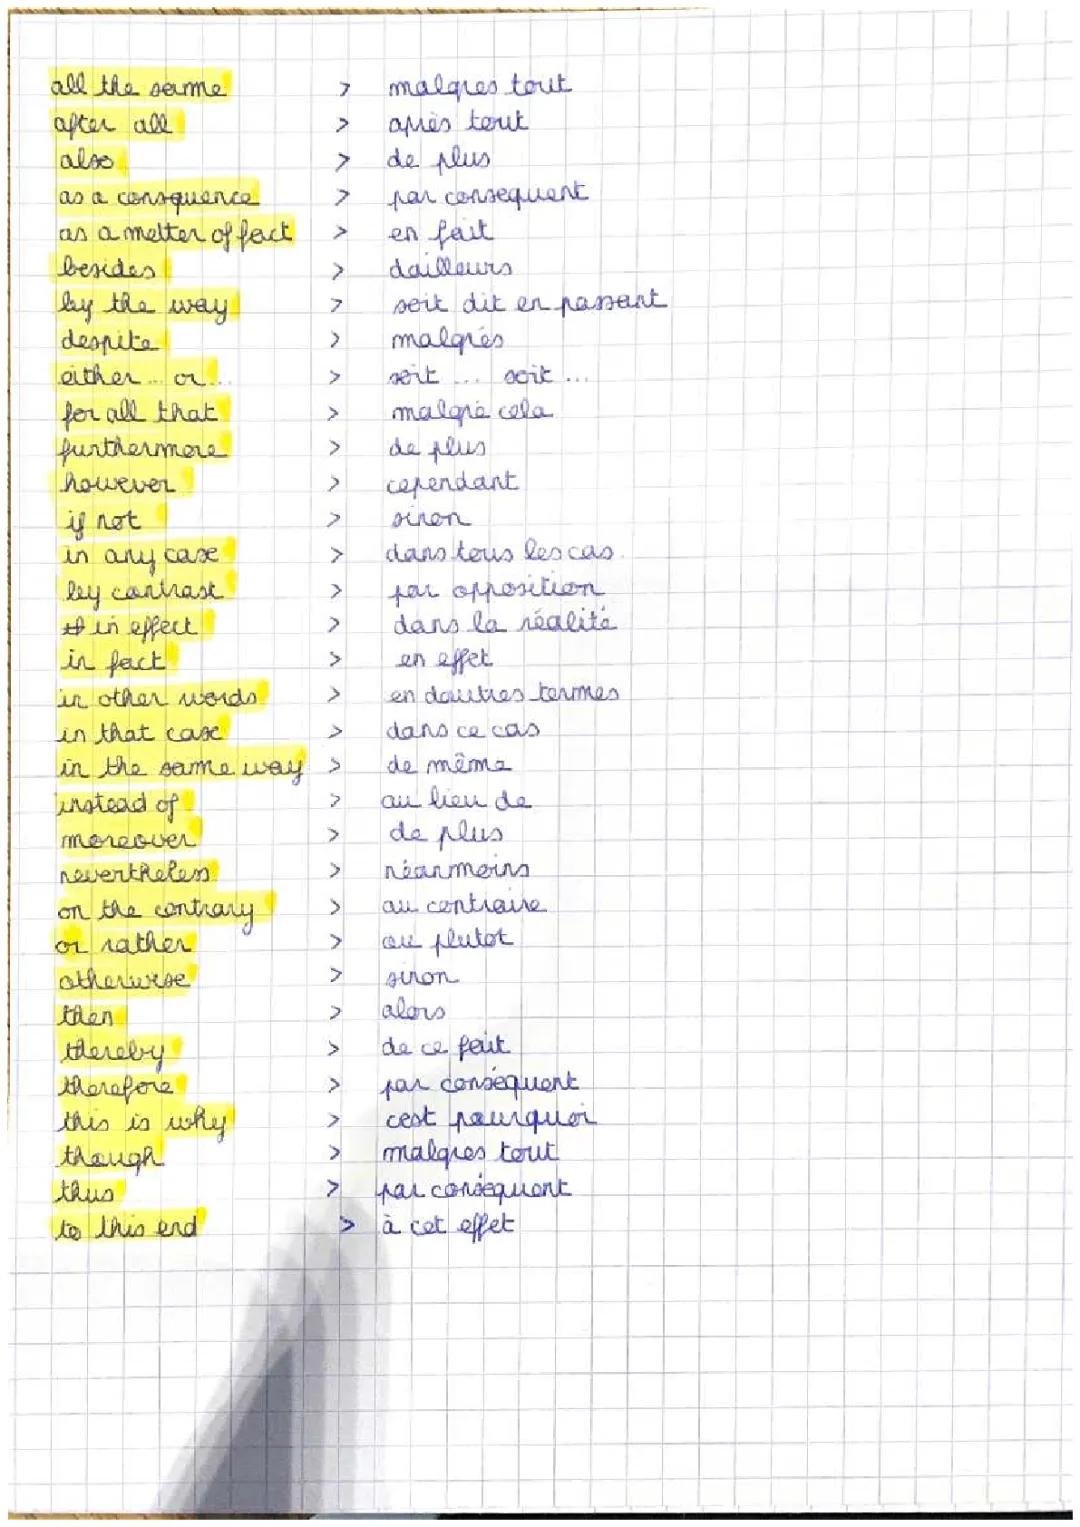 all the same > malgres tout
after all > après tout
also > de plus
as a consquence > par consequent
as a matter of fact > en fait
besides > dailleurs
by the way > soit dit en passant
despite > malgrés
either ... or ... > soit ... soit ...
for all that > malgré cela
furthermore > de plus
however > cependant
if not > sinon
in any case > dans tous les cas.
by contrast > par opposition
in effect > dans la réalité
in fact > en effet
in other words > en dautres termes
in that case > dans ce cas
in the same way > de même
instead of > au lieu de
moreover > de plus
nevertheless > néanmoins
on the contrary > au contraire
or rather > ou plutot
otherwise > sinon
then > alors
thereby > de ce fait
therefore > par conséquent
this is why > cest pourquoi
though > malgres tout
thus > par conséquent
to this end > à cet effet